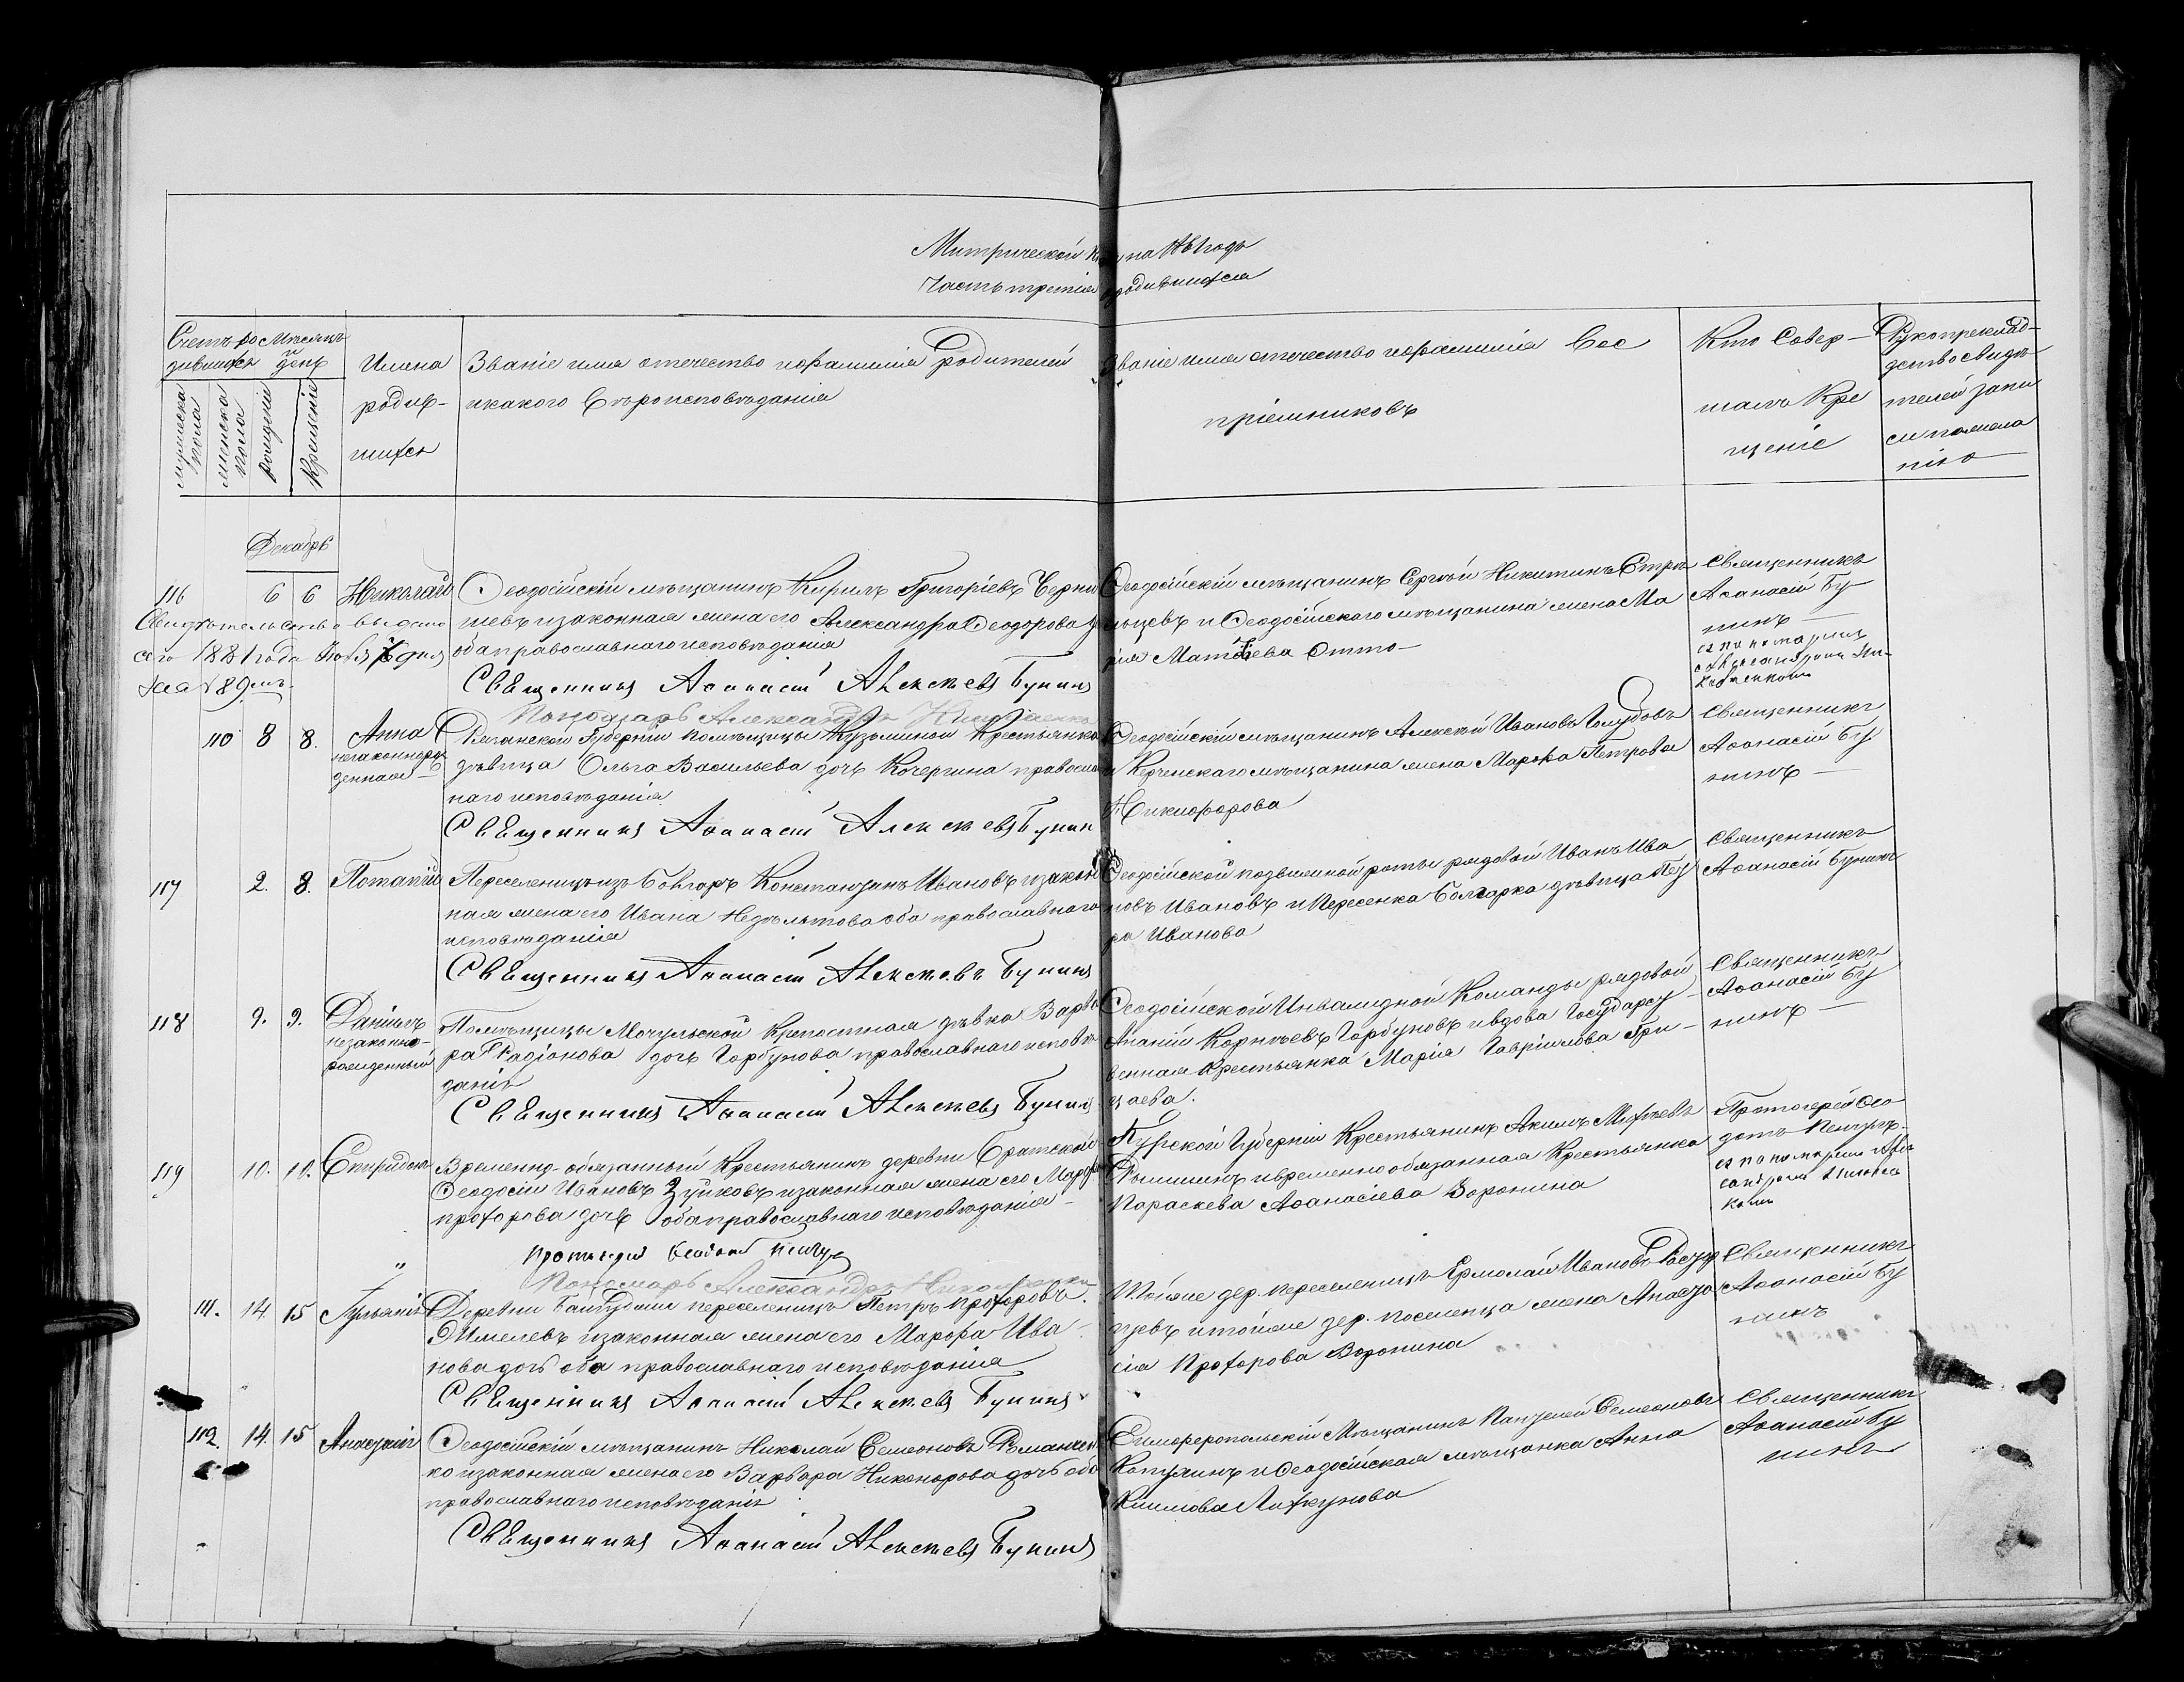 Метрической на годъ
Часть третія родившихся
Счетъ родившихся
Мѣсяцъ и день
мужеска пола
женска пола
рожденія
Крещенія
Имена
родив-
шихся
Званіе имя отечество и фамилія Родителей
и какого Вѣроисповѣданія
Званіе имя отечество и фамилія Вос
пріемниковъ
Кто Совер-
шалъ Кре
щеніе
Рукоприклад-
ство свидѣ
телей запи
си по жела
нію
Декабрь
116 6 6 Николай
Свидѣтельство выдано
сего 1881 года дня
за № 89
Ѳеодосійскій мѣщанинъ Кирилъ Григоріевъ Черни
шевъ и законная жена его Александра Ѳеодорова
оба православнаго исповѣданія
Священникъ Аѳанасій Алексѣевъ Бунинъ
Пономарь Александръ
Ѳеодосійскій мѣщанинъ Сергѣй Никитинъ Стрѣ
льцевъ и Ѳеодосійскаго мѣщанина жена Ма
рія Матѳѣева Отто
Священникъ
Аѳанасій Бу
нинъ
съ пономаремъ
Александромъ
110 8 8. Анна
незаконнорож
денная
Губерніи помѣщицы Кузьминой Крестьянка
дѣвица Ольга Васильева дочь Кочергина православ
наго исповѣданія
Священникъ Аѳанасій Алексѣевъ Бунин
Ѳеодосійскій мѣщанинъ Алексѣй Ивановъ Голубовъ
и Керченскаго мѣщанина жена Марѳа Петрова
Никифорова
Священникъ
Аѳанасій Бу
нинъ
117 2. 8. Потапій
Переселенецъ изъ Болгаръ Константинъ Ивановъ и закон
ная жена его Ивана оба православнаго
исповѣданія
Священникъ Аѳанасій Алексѣевъ Бунинъ
Ѳеодосійской роты рядовой Иванъ Ива
новъ Ивановъ и Болгарка дѣвица
ра Иванова
Священникъ
Аѳанасій Бунинъ
118 9. 9. Даніилъ
незаконно-
рожденный
Помѣщицы Мочульской Крепостная дѣвка Варва
ра Радіонова дочь Горбунова православнаго исповѣ
данія
Священникъ Аѳанасій Алексѣевъ Бунинъ
Ѳеодосійской Инвалидной Команды рядовой
Ананій Корнѣевъ Горбуновъ и вдова Государст
венная Крестьянка Марія Гавріилова Гри
цаева.
Священникъ
Аѳанасій Бу
нинъ
119 10. 10. Спиридонъ
Временно-обязанный Крестьянинъ деревни Братской
Ѳеодосій Ивановъ Зуйковъ и законная жена его Марѳа
Прохорова дочь оба православнаго исповѣданія
Протоіерей
Пономарь Александръ
Курской Губерніи Крестьянинъ Акимъ Михѣевъ
и временно обязанная Крестьянка
Параскева Аѳанасіева Воронина
Протоіерей Ѳео
съ пономаремъ Але
ксандромъ
111. 14. 15 Іуліанія
Деревни Байбуды переселенецъ Петръ Прохоровъ
и законная жена его Марѳа Ива
нова дочь оба православнаго исповѣданія
Священникъ Аѳанасій Алексѣевъ Бунинъ
Той же дер. переселенецъ Ермолай Ивановъ
цевъ и той же дер. поселенца жена Анаста
сія Прохорова Воронина
Священникъ
Аѳанасій Бу
нинъ
112. 14. 15 Анастасія
Ѳеодосійскій мѣщанинъ Николай Семеоновъ Романчен
ко и законная жена его Варвара Никонорова дочь оба
православнаго исповѣданія
Священникъ Аѳанасій Алексѣевъ Бунинъ
Симферопольскій Мѣщанинъ Пантелей Семеоновъ
и Ѳеодосійская мѣщанка Анна
Климова
Священникъ
Аѳанасій Бу
нинъ